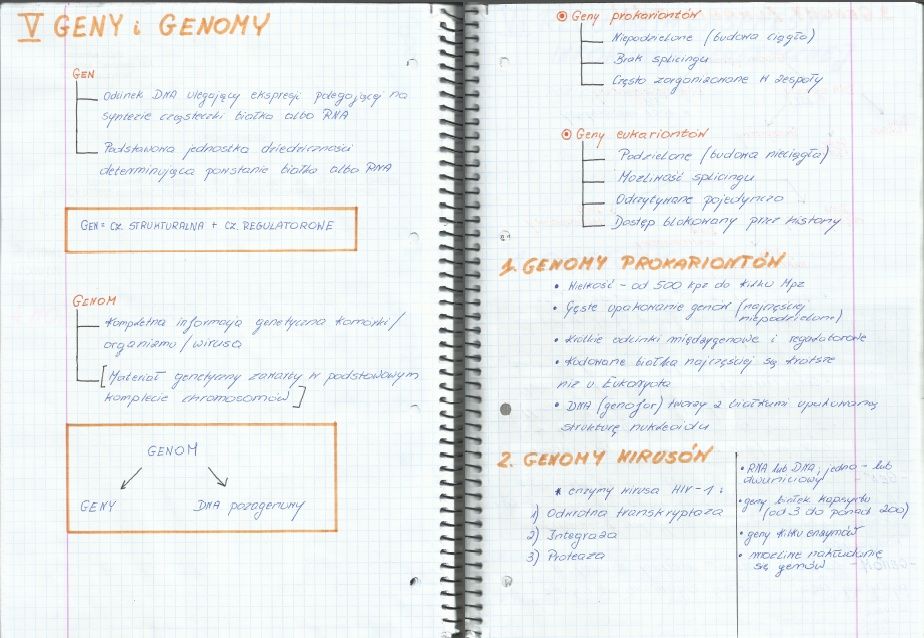 V GENY i GENOMY
GEN
Odcinek DNA ulegający ekspresji polegającej na
syntezie cząsteczki białka albo RNA
Podstawowa jednostka dziedziczności
determinująca powstanie białka albo RNA
GEN = CZ. STRUKTURALNA + CZ. REGULATOROWE
GENOM
Kompletna informacja genetyczna komórki/
organizmu/wirusa
[Materiał genetyczny zawarty w podstawowym
komplecie chromosomów]
GENOM
GENY
DNA pozagenowy
Geny prokariontów
Niepodzielone (budowa ciągła)
Brak splicingu
Często zorganizowane w zespoły
Geny eukariontów
Podzielone (budowa nieciągła)
Możliwość splicingu
Odczytywane pojedynczo
Dostęp blokowany przez histony
1. GENOMY PROKARIONTÓW
• Wielkość - od 500 kpz do kilku Mpz
• Gęste upakowanie genów (najczęściej
niepodzielone)
• Krótkie odcinki międzygenowe i regulatorowe
• Kodowane białka najczęściej są krótsze
niż u Eukaryota
• DNA (genofor) tworzy z białkami upakowaną
strukturę nukleoidu
2. GENOMY WIRUSÓW
* enzymy wirusa HIV-1:
1) Odwrotna transkryptaza
2) Integraza
3) Proteaza
• RNA lub DNA, jedno- lub
dwuniciowy
• geny białek kapsydu
(od 3 do ponad 200)
• geny kilku enzymów
• możliwe nakładanie
się genów